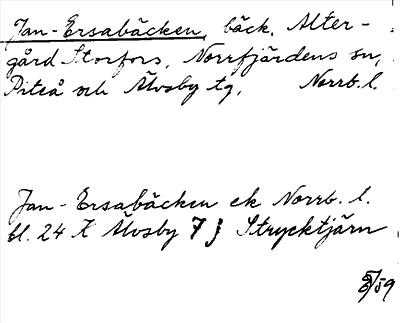 Jan-Ersabäcken, bäck, Alter-
gård Storfors, Norrfjärdens sn,
Piteå och Älvsby tg, Norrb. l.
Jan-Ersabäcken ek Norrb. l.
bl. 24 X Älvsby 7 j Strycktjärn
59